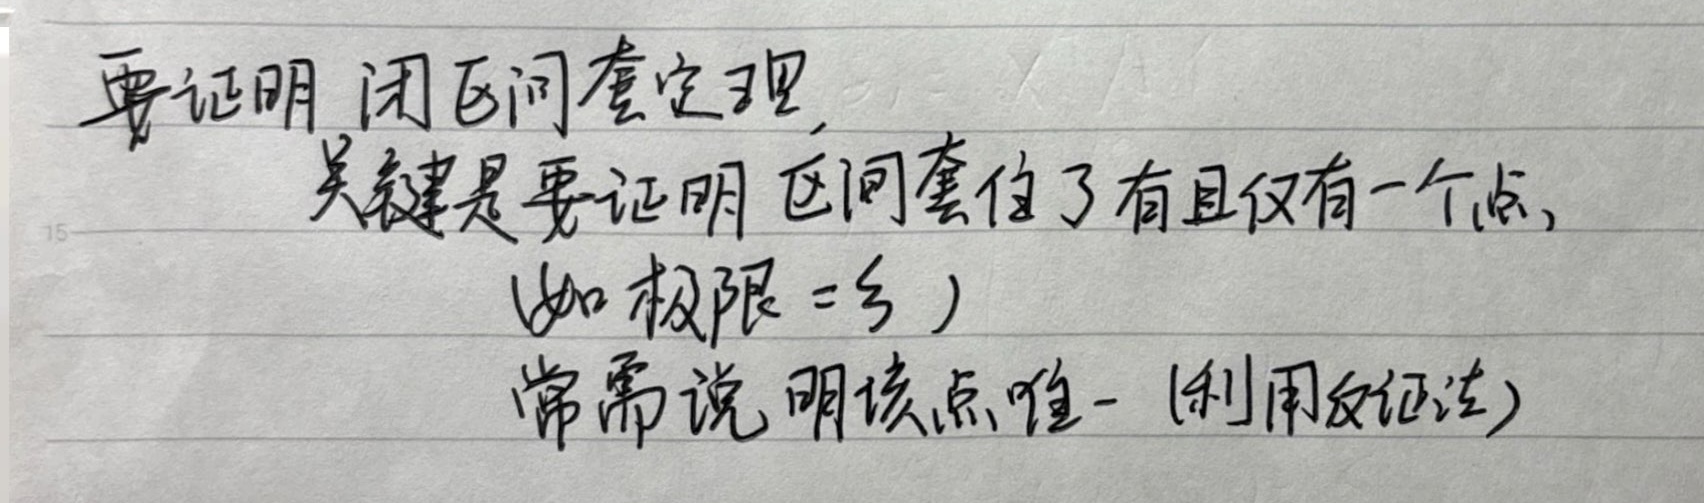 要证明 闭区间套定理,
关键是要证明 区间套住了有且仅有一个点,
(如极限 = ξ )
常需说明该点唯一 (利用反证法)
15